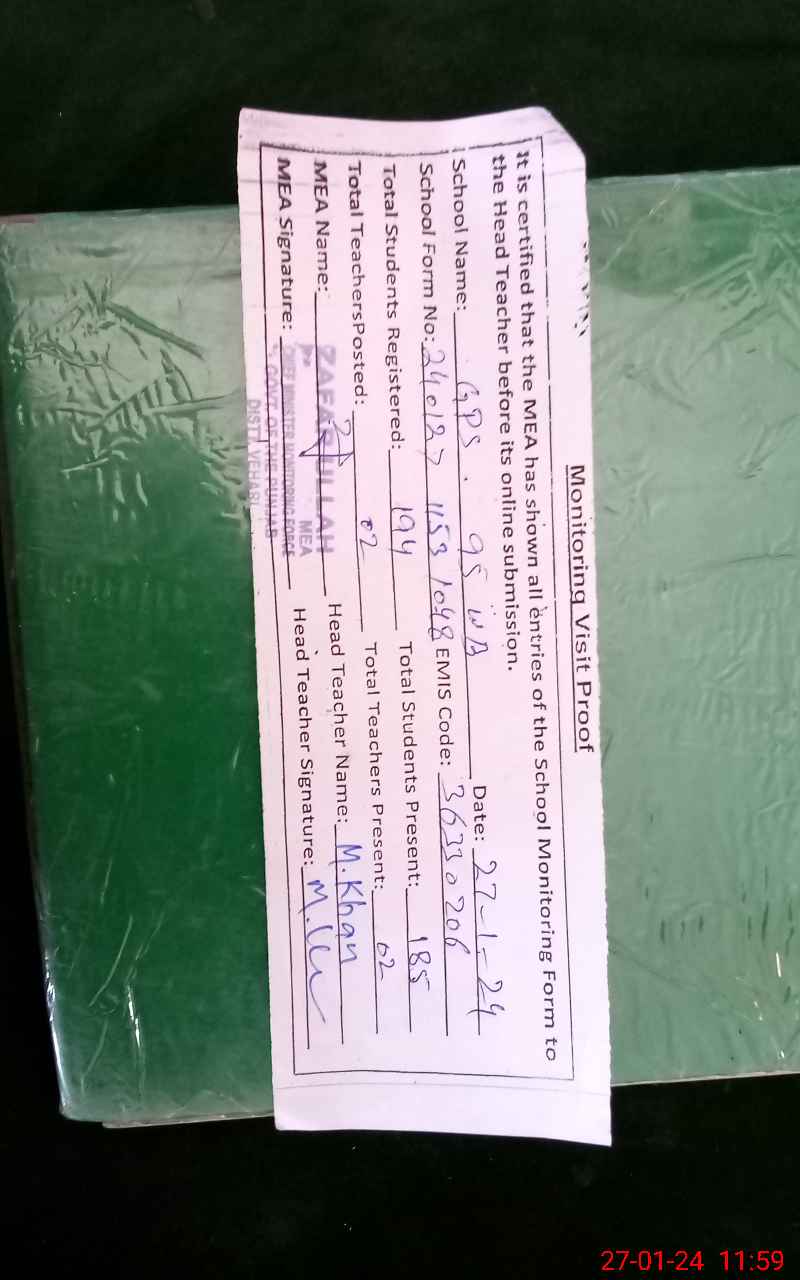 Monitoring Visit Proof
It is certified that the MEA has shown all entries of the School Monitoring Form to
the Head Teacher before its online submission.
School Name: GPS. 95 WB Date: 27-1-24
School Form No: 240127 1153 1048 EMIS Code: 36330206
Total Students Registered: 194 Total Students Present: 185
Total TeachersPosted: 02 Total Teachers Present: 02
MEA Name: ZAFARULLAH Head Teacher Name: M.Khan
MEA
MEA Signature: Head Teacher Signature:
CHIEF MINISTER MONITORING FORCE
GOVT. OF THE PUNJAB
DISTT. VEHARI
27-01-24 11:59